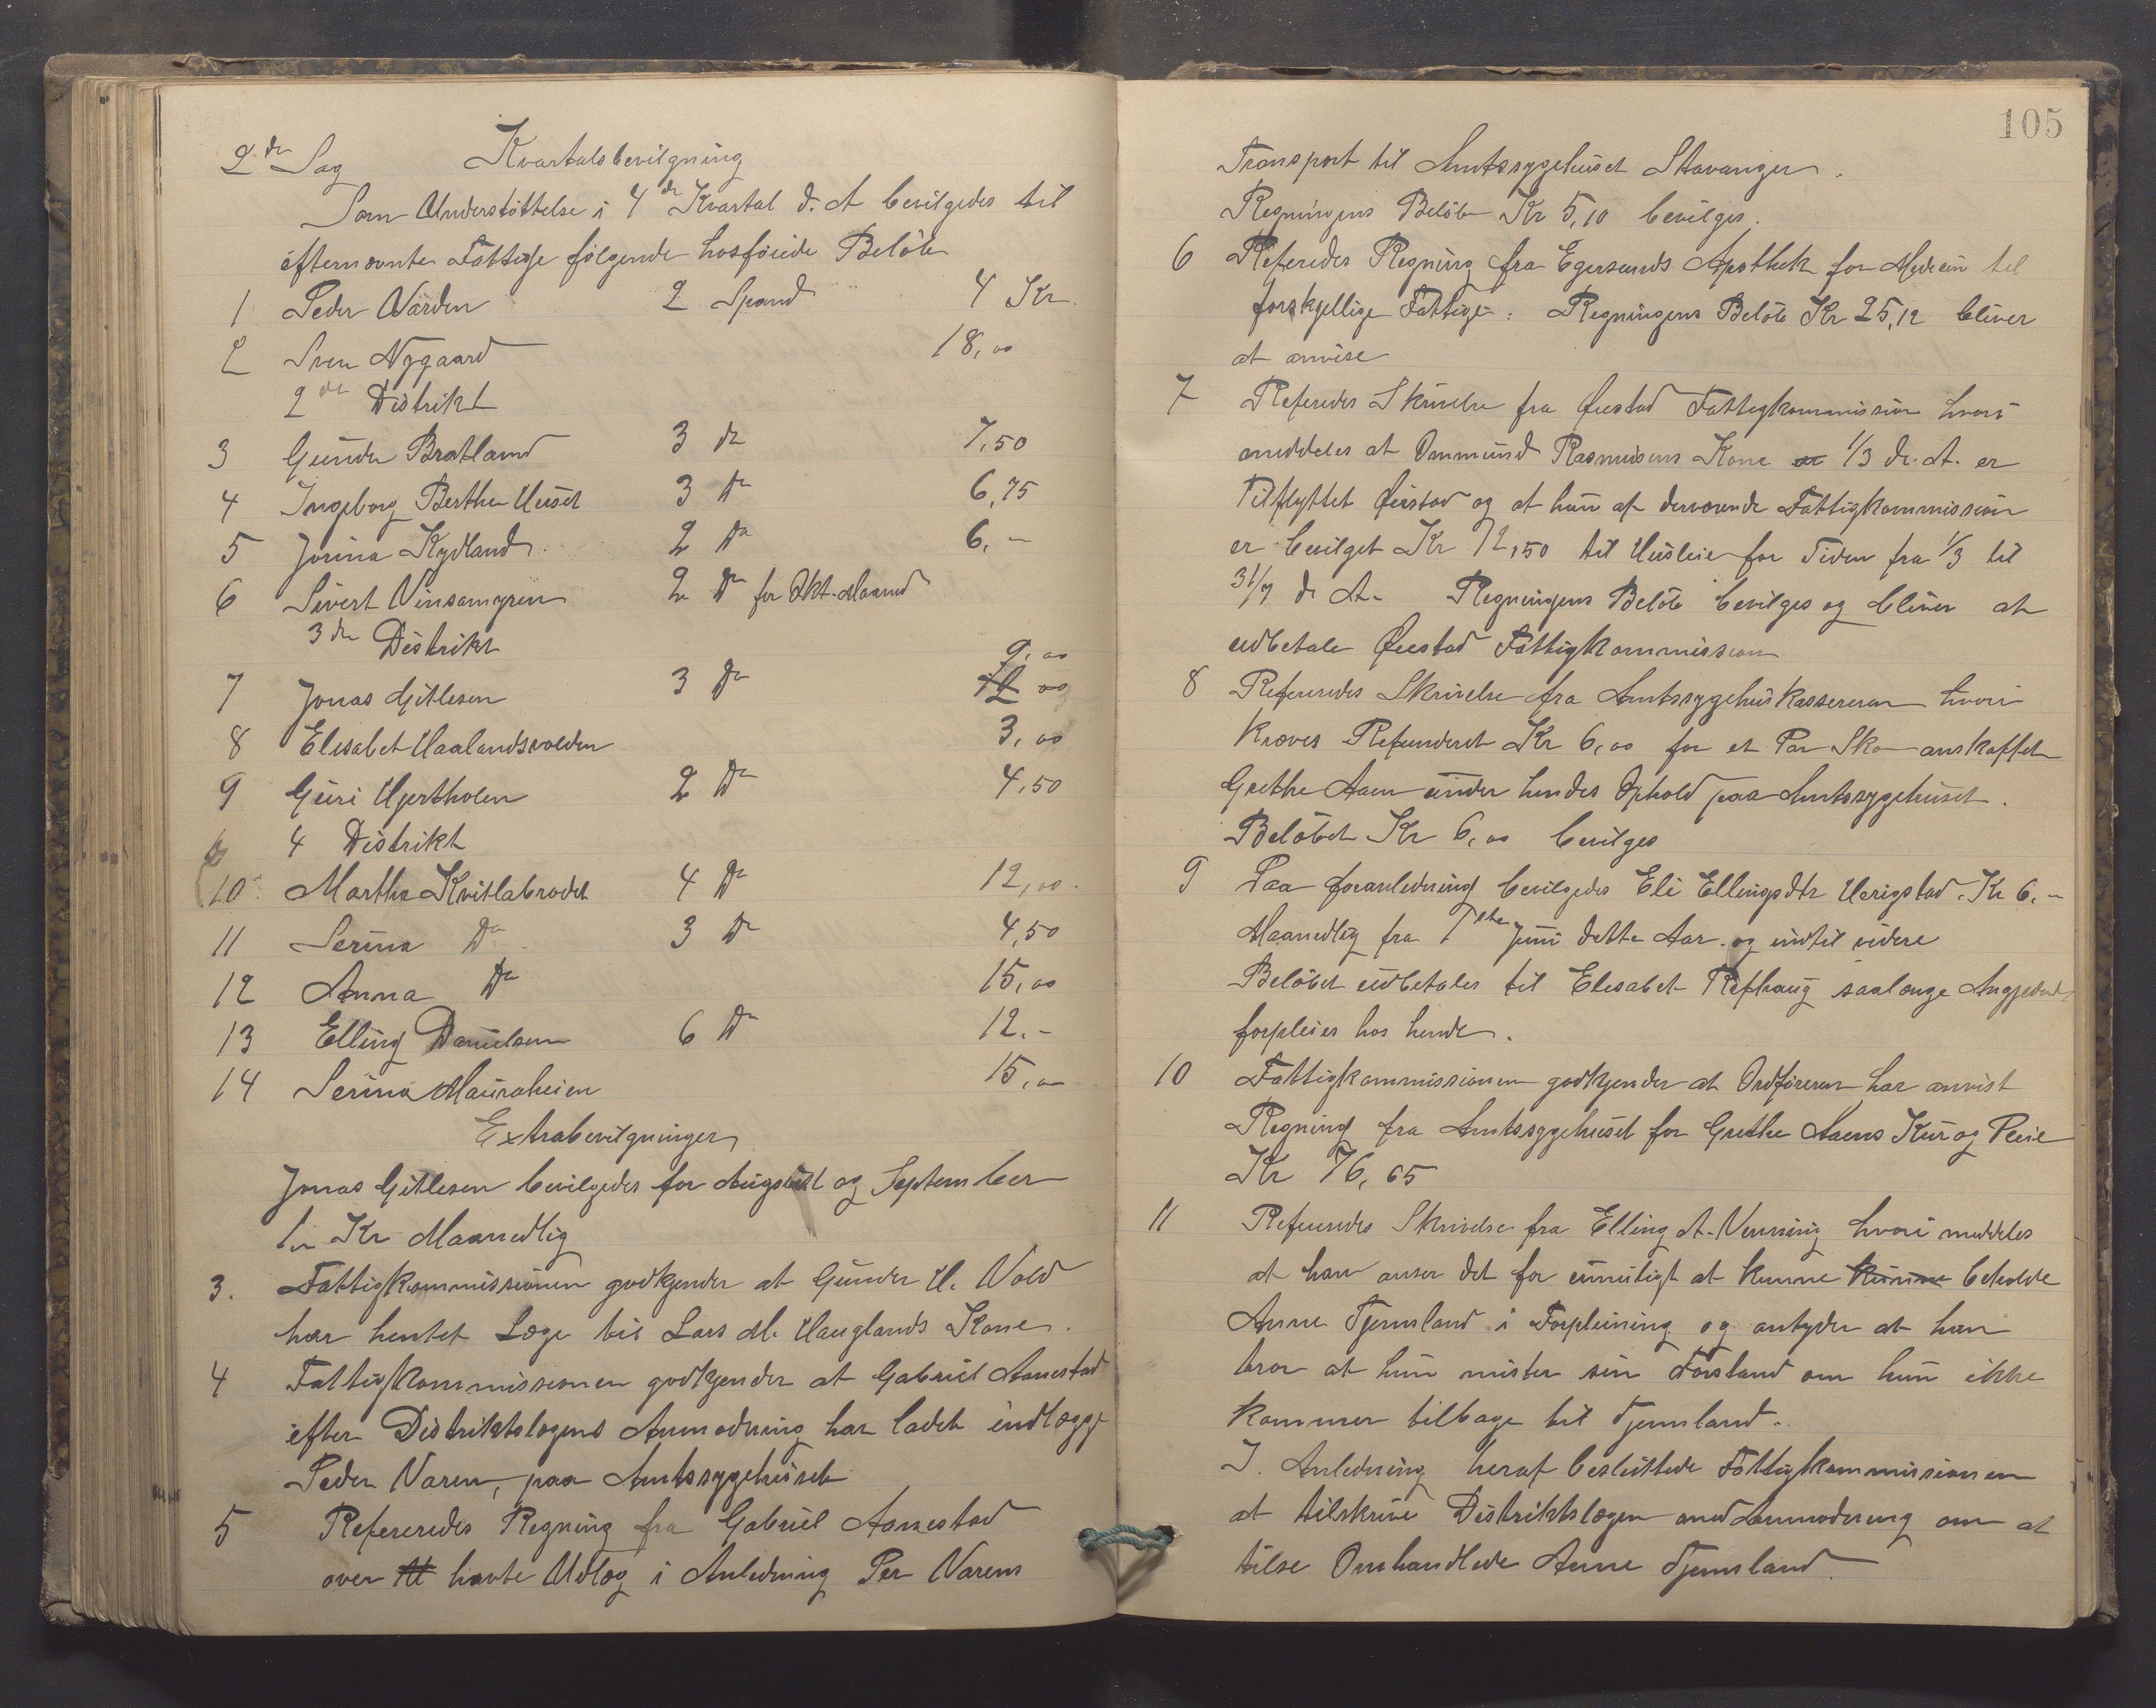 2den Sag Kvartalsbevilgning
Som Understöttelse i 4de Kvartal d. A bevilgedes til
efternævnte Fattige følgende hosføiede Beløb
1 Peder Varden 2 Spand 4 Kr.
2 Sven Nygaard 18,00
2den Distrikt
3 Gunder Bratland 3 do 7,50
4 Ingeborg Berthe Huset 3 Do 6,75
5 Jorina Kydland 2 Do 6,-
6 Sivert Vinsamyren 2 Do for Okt. Maaned
3de Distrikt 9,00
7 Jonas Gitlesen 3 Do 12 00
8 Elisabet Haalandsvolden 3,00
9 Guri Hjertholen 2 Do 4,50
4 Distrikt
10 Martha Kvitlabrodet 4 Do 12,00
11 Serina Do 3 Do 4,50
12 Anna Do 15,00
13 Elling Danielsen 6 Do 12.-
14 Serina Mauraheien 15,00
Extrabevilgninger
Jonas Gitlesen bevilgedes for August og September
Kr Maanedlig
3. Fattigkommissionen godkjender at Gunder H. Vold
har hentet Læge til Lars M. Hauglands Kone.
4 Fattigkommissionen godkjender at Gabriel Aanestad
efter Distriktslægens Anmodning har ladet indlægge
Peder Varen, paa Amtssygehuset
5 Refereredes Regning fra Gabriel Aanestad
over havte Udlæg i Anledning Per Varens
105
Transport til Amtssygehuset Stavanger.
Regningens Beløb Kr 5,10 bevilges.
6 Referedes Regning fra Egersunds Apothek for Medicin til
forskjellige Fattige. Regningens Beløb Kr 25,12 bliver
at anvise
7 Referedes Skrivelse fra Øiestad Fattigkommission hvori
meddeles at Ommund Rasmusens Kone er 1/3 d. A. er
Tilflyttet Øiestad og at hun af derværende Fattigkommission
er bevilget Kr 12,50 til Husleie for Tiden fra 1/3 til
31/7 d. A. Regningens Beløb bevilges og bliver at
udbetale Øiestad Fattigkommission
8 Refereredes Skrivelse fra Amtssygehuskassereren hvori
kræves Refunderet Kr 6,00 for et Par Sko anskaffet
Grethe Aaen under hendes Ophold paa Amtssygehuset.
Beløbet Kr 6,00 bevilges
9 Paa foranledning bevilgedes Eli Ellingsdtr Herigstad. Kr 6.-
Maanedlig fra 1ste Juni dette Aar. og indtil videre
Beløbet udbetales til Elisabet Refhaug saalænge Angjeldende
forpleies hos hende.
10 Fattigkommissionen godkjender at Ordføreren har anvist
Regning fra Amtssygehuset for Grethe Aaens Kur og Pleie
Kr 76,65
11 Refereredes Skrivelse fra Elling A. Nerning hvori meddeles
at han anser det for umuligt at kunne kunne beholde
Anne Tjemsland i Forpleining og antyder at han
tror at hun mister sin Forstand om hun ikke
kommer tilbage til Tjemsland.
I. Anledning heraf besluttede Fattigkommissionen
at tilskrive Distriktslægen med Anmodning om at
tilse Omhandlede Anne Tjemsland.